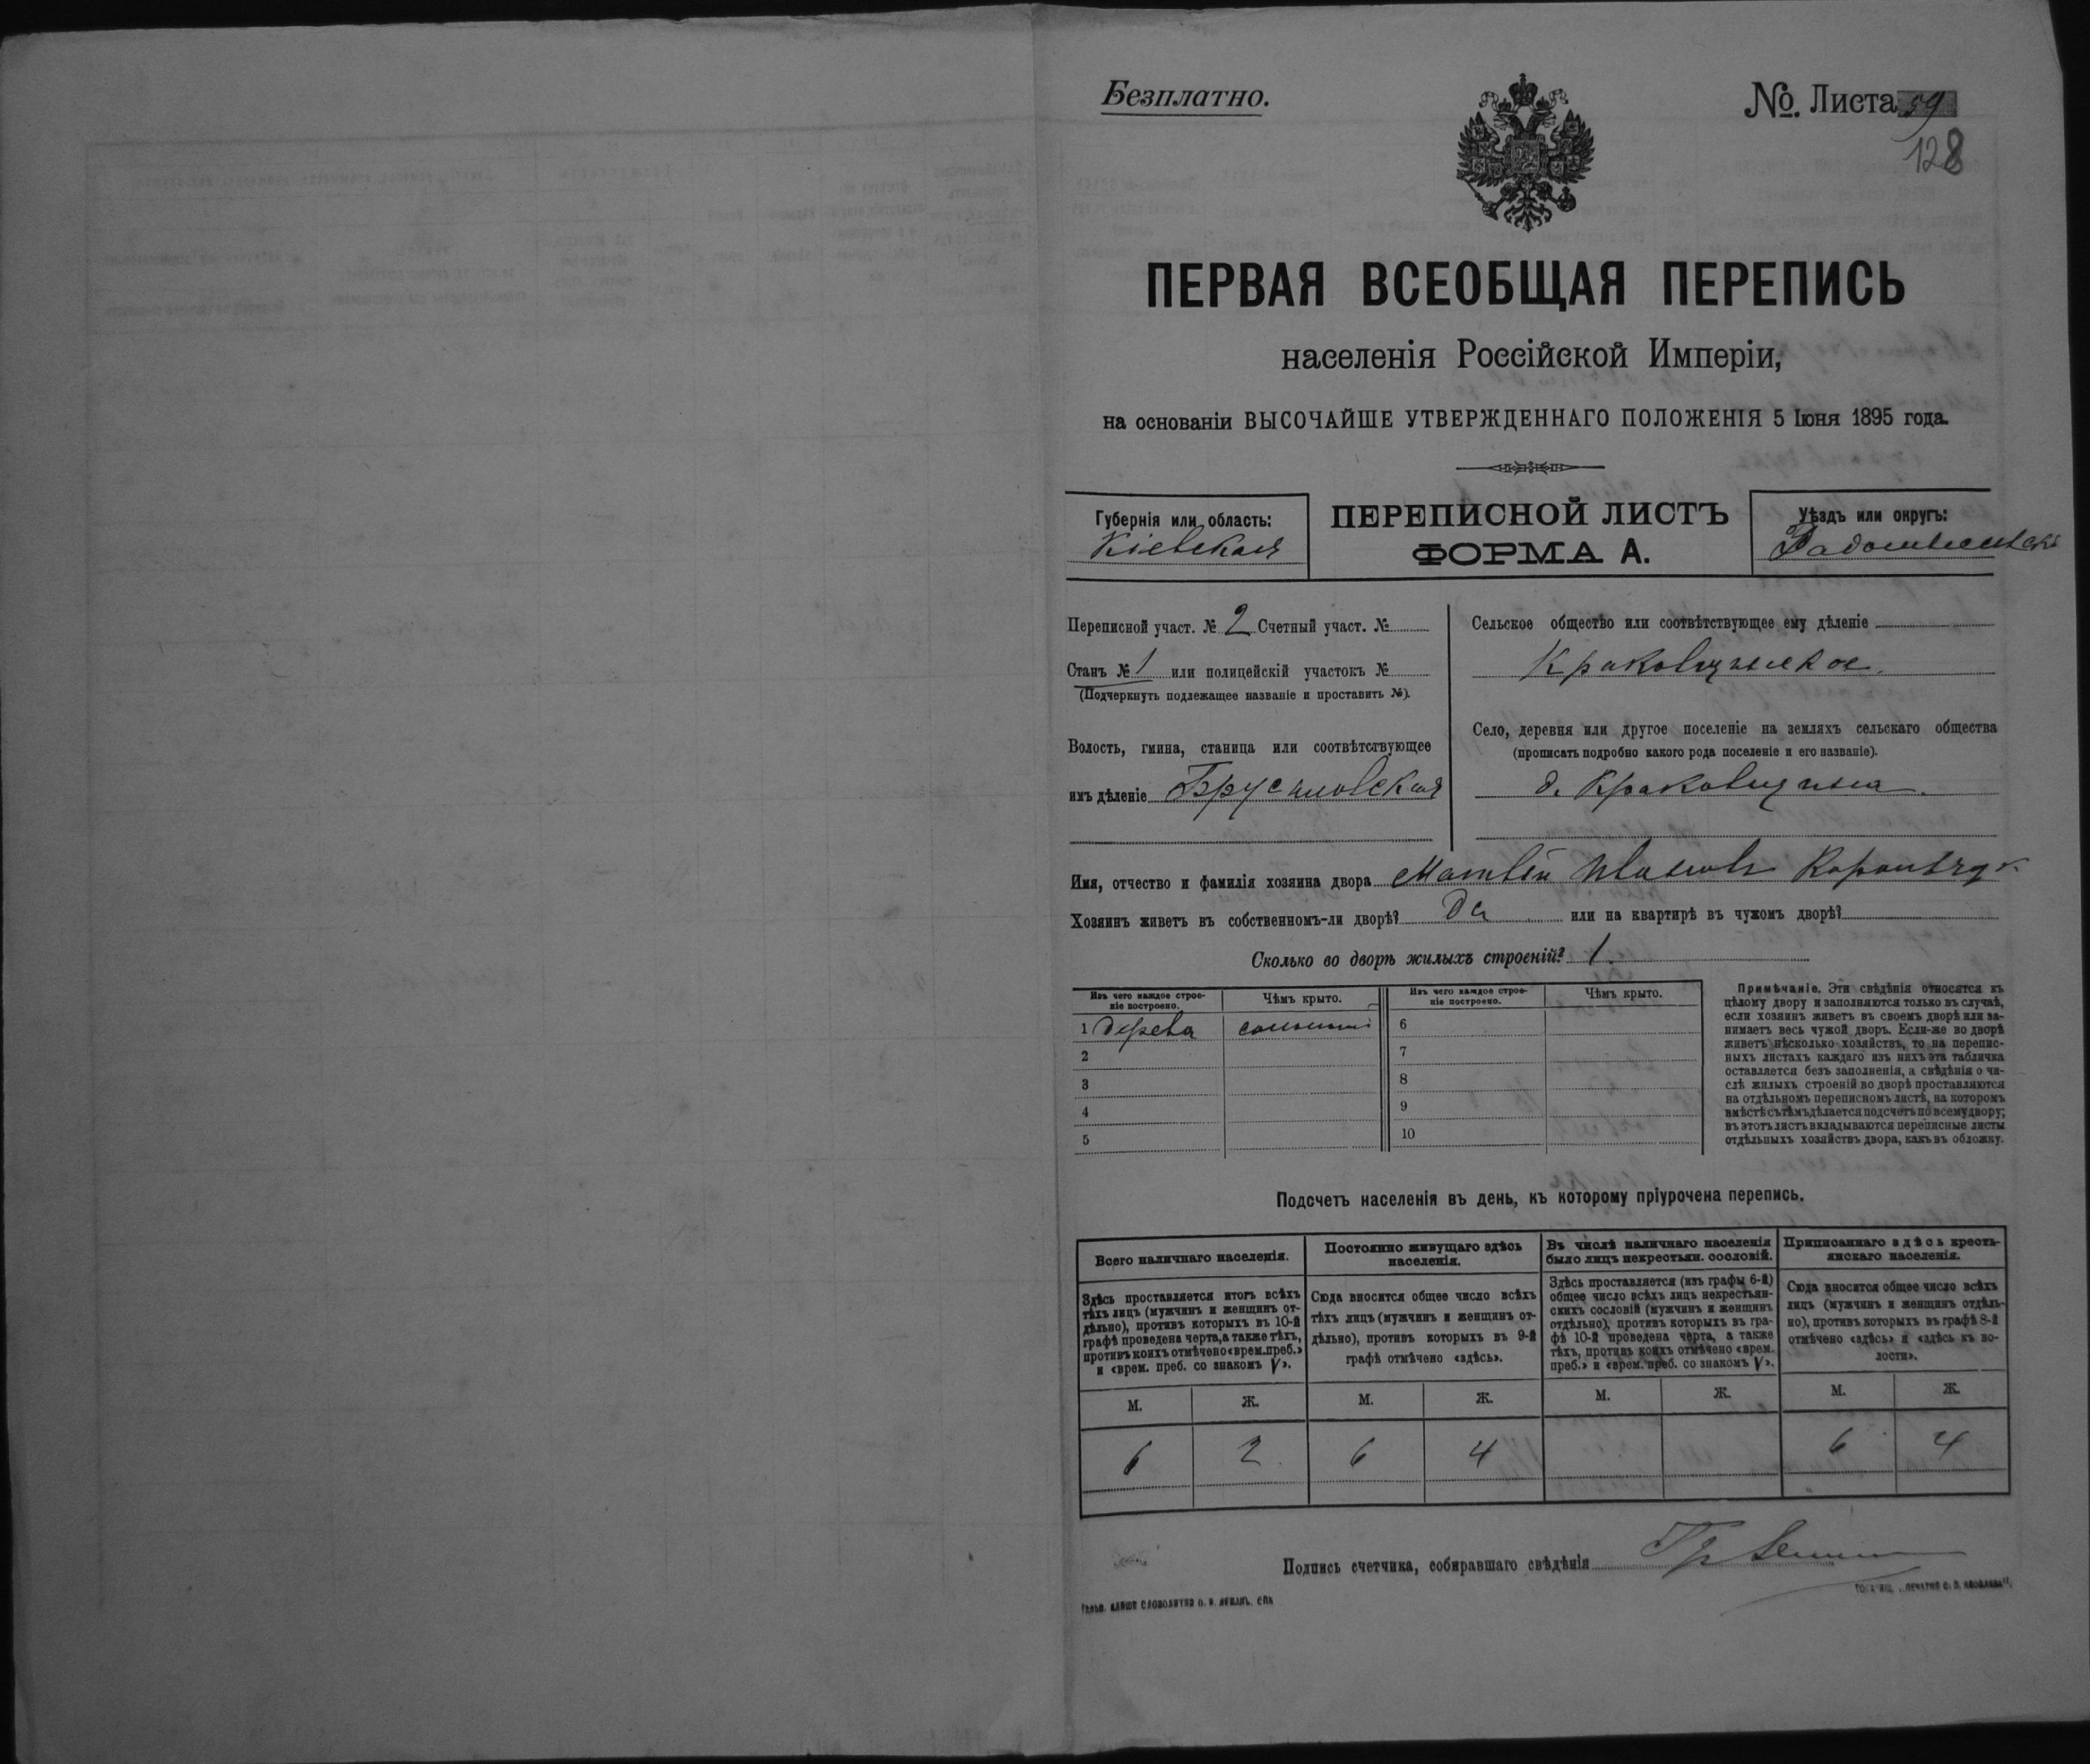 Безплатно.
№. Листа 59
128
ПЕРВАЯ ВСЕОБЩАЯ ПЕРЕПИСЬ
населенія Россійской Имперіи,
на основаніи ВЫСОЧАЙШЕ УТВЕРЖДЕННАГО ПОЛОЖЕНІЯ 5 Іюня 1895 года.
Губернія или область:
Кіевская
ПЕРЕПИСНОЙ ЛИСТЪ
ФОРМА А.
Уѣздъ или округъ:
Радомысльскій
Переписной участ. № 2 Счетный участ. №
Станъ № 1 или полицейскій участокъ №
(Подчеркнуть подлежащее названіе и проставить №).
Волость, гмина, станица или соотвѣтствующее
имъ дѣленіе Брусиловская
Сельское общество или соотвѣтствующее ему дѣленіе
Краковщинское
Село, деревня или другое поселеніе на земляхъ сельскаго общества
(прописать подробно какого рода поселеніе и его названіе).
д. Краковщина.
Имя, отчество и фамилія хозяина двора Матвѣй Ивановъ
Хозяинъ живетъ въ собственномъ-ли дворѣ? Да или на квартирѣ въ чужомъ дворѣ?
Сколько во дворѣ жилыхъ строеній? 1.
Изъ чего каждое строе-
ніе построено.
Чѣмъ крыто.
Изъ чего каждое строе-
ніе построено.
Чѣмъ крыто.
1 дерева соломой 6
2 7
3 8
4 9
5 10
Примѣчаніе. Эти свѣдѣнія относятся къ
цѣлому двору и заполняются только въ случаѣ,
если хозяинъ живетъ въ своемъ дворѣ или за-
нимаетъ весь чужой дворъ. Если-же во дворѣ
живетъ нѣсколько хозяйствъ, то на перепис-
ныхъ листахъ каждаго изъ нихъ эта табличка
оставляется безъ заполненія, а свѣдѣнія о чи-
слѣ жилыхъ строеній во дворѣ проставляются
на отдѣльномъ переписномъ листѣ, на которомъ
вмѣстѣ съ тѣмъ дѣлается подсчетъ по всему двору;
въ этотъ листъ вкладываются переписные листы
отдѣльныхъ хозяйствъ двора, какъ въ обложку.
Подсчетъ населенія въ день, къ которому пріурочена перепись.
Всего наличнаго населенія.
Здѣсь проставляется итогъ всѣхъ
тѣхъ лицъ (мужчинъ и женщинъ от-
дѣльно), противъ которыхъ въ 10-й
графѣ проведена черта, а также тѣхъ,
противъ коихъ отмѣчено «врем. преб.»
и «врем. преб. со знакомъ V».
Постоянно живущаго здѣсь
населенія.
Сюда вносится общее число всѣхъ
тѣхъ лицъ (мужчинъ и женщинъ от-
дѣльно), противъ которыхъ въ 9-й
графѣ отмѣчено «здѣсь».
Въ числѣ наличнаго населенія
было лицъ некрестьян. сословій.
Здѣсь проставляется (изъ графы 6-й)
общее число всѣхъ лицъ некрестьян-
скихъ сословій (мужчинъ и женщинъ
отдѣльно), противъ которыхъ въ гра-
фѣ 10-й проведена черта, а также
тѣхъ, противъ коихъ отмѣчено «врем.
преб.» и «врем. преб. со знакомъ V».
Приписаннаго здѣсь кресть-
янскаго населенія.
Сюда вносится общее число всѣхъ
лицъ (мужчинъ и женщинъ отдѣль-
но), противъ которыхъ въ графѣ 8-й
отмѣчено «здѣсь» и «здѣсь къ во-
лости».
М. Ж. М. Ж. М. Ж. М. Ж.
6 2 6 4 6 4
Подпись счетчика, собиравшаго свѣдѣнія